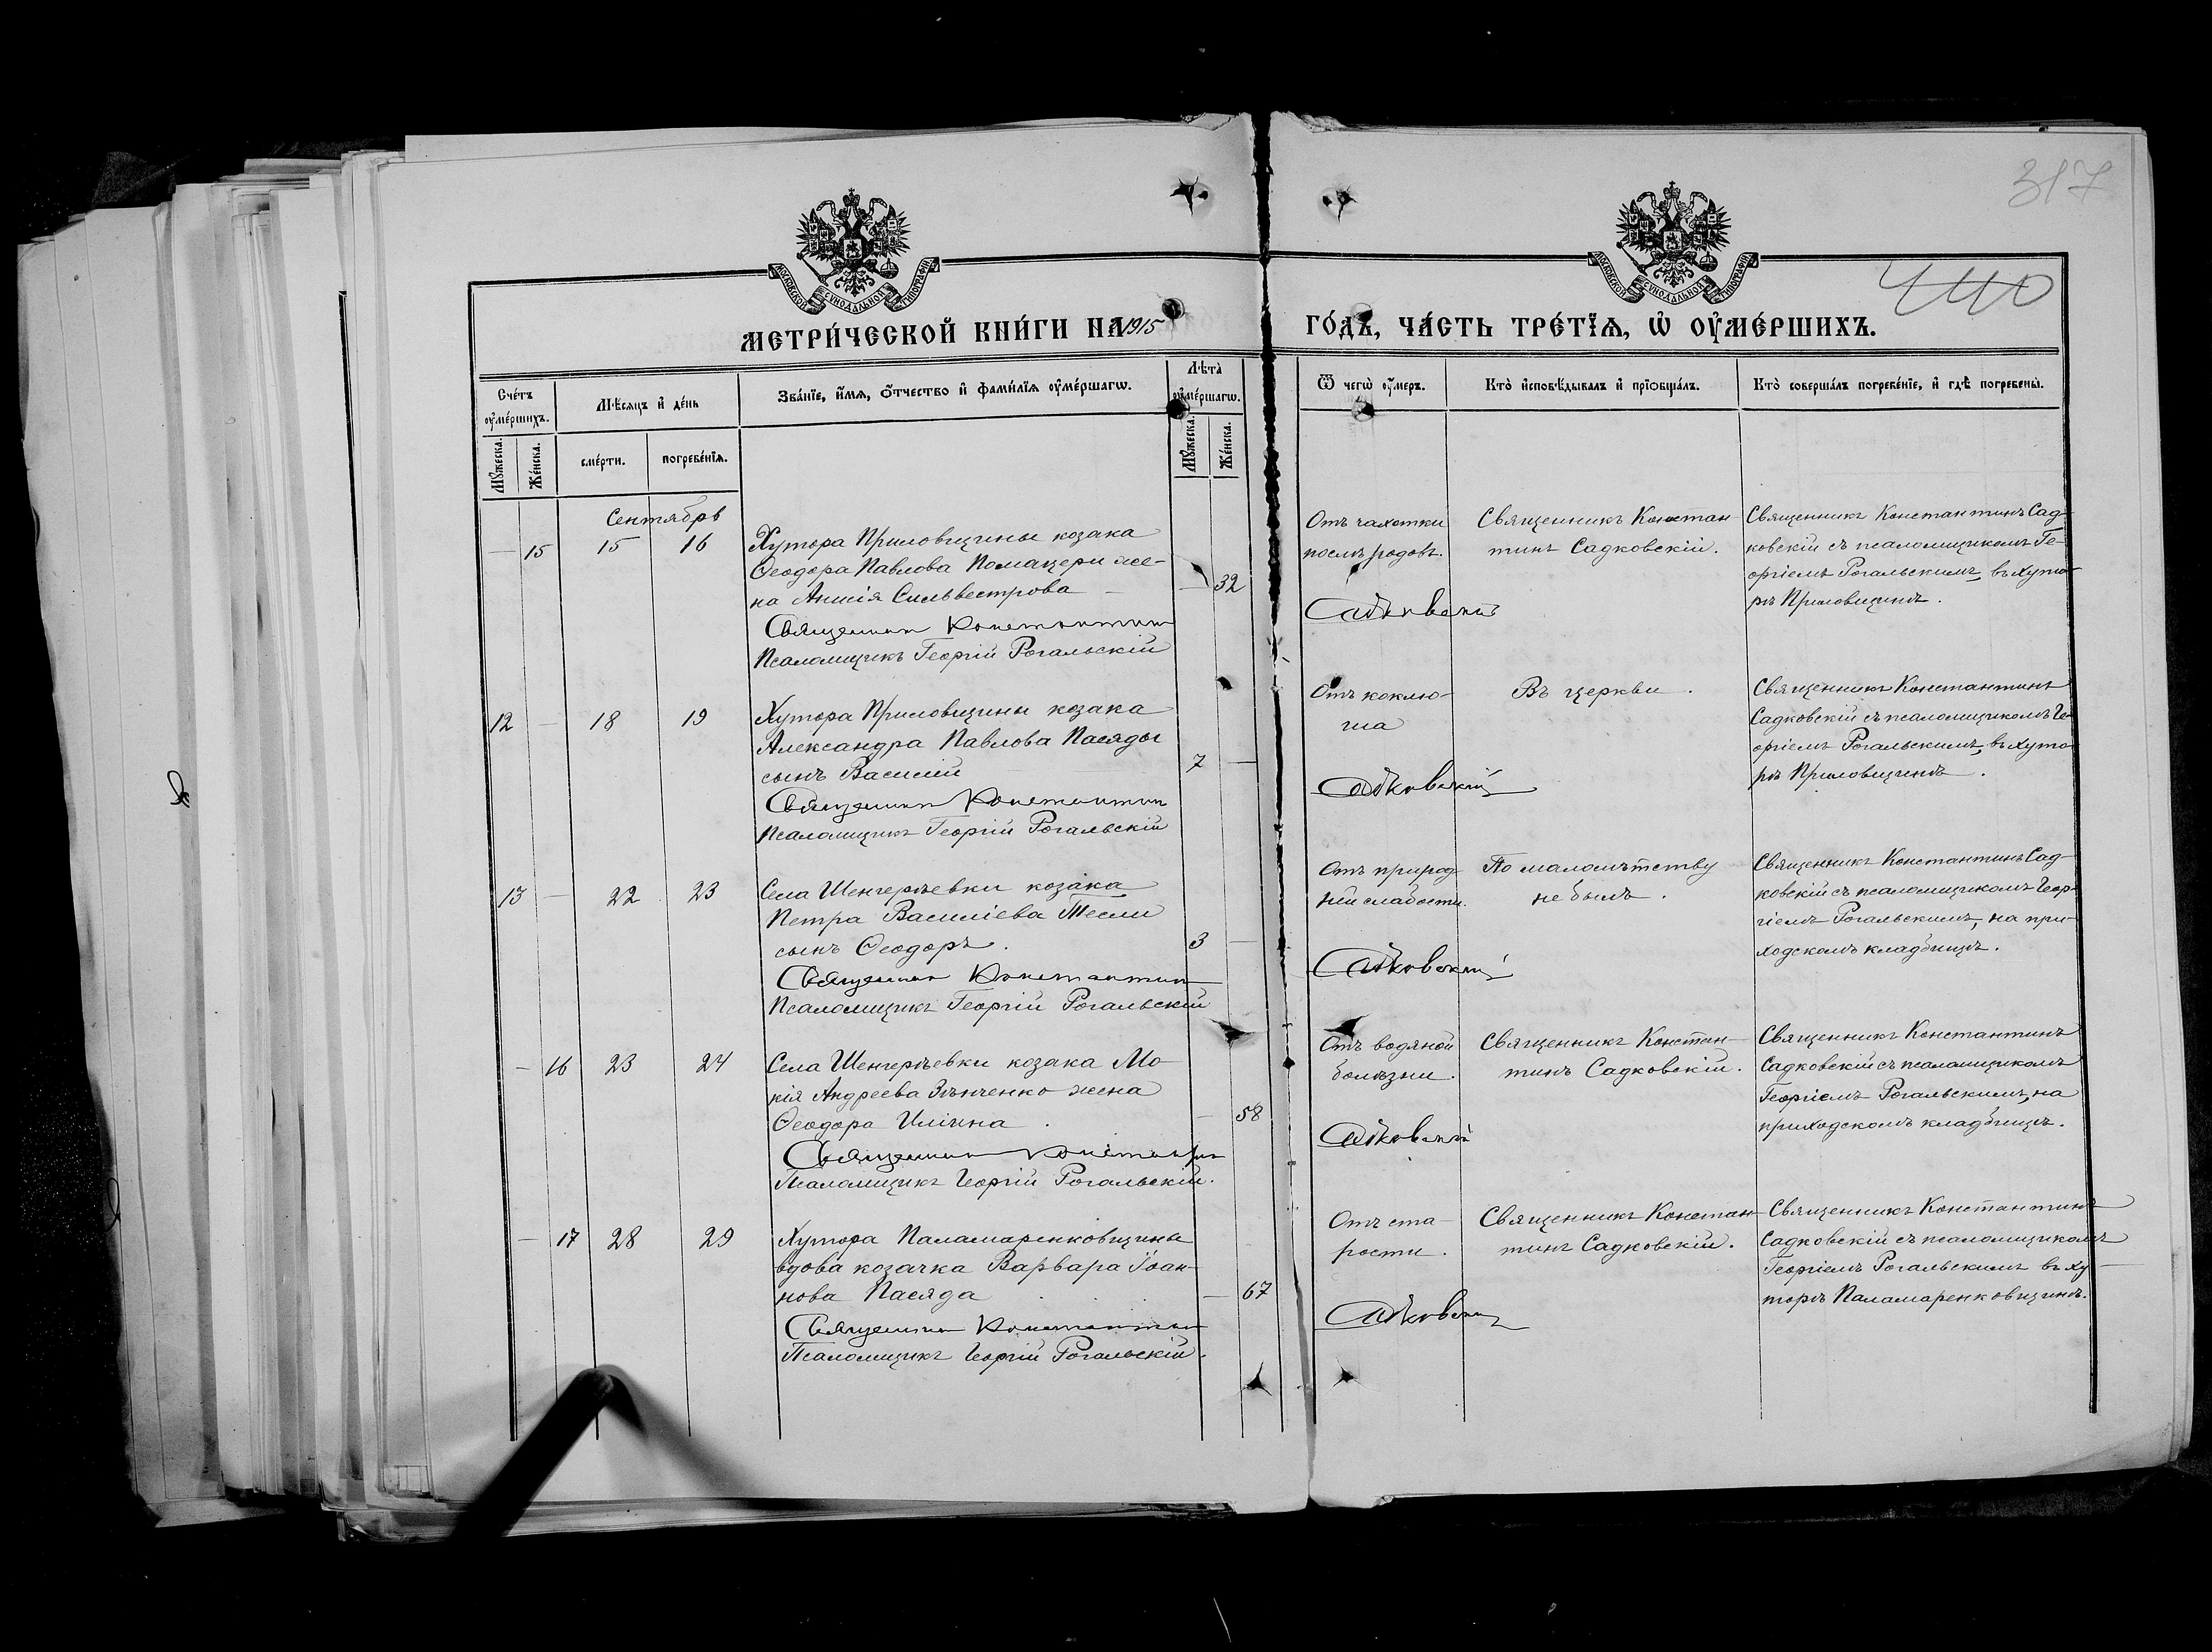 317
440
МОСКОВСКОЙ СУНОДАЛЬНОЙ ТИПОГРАФІИ
МОСКОВСКОЙ СУНОДАЛЬНОЙ ТИПОГРАФІИ
МЕТРИ́ЧЕСКОЙ КНИ́ГИ НА 1915 ГО́ДЪ, ЧА́СТЬ ТРЕ́ТЇѦ, Ѡ҆ ОУ҆МЕ́РШИХЪ.
Сче́тъ оу҆ме́ршихъ.
Мѣ́сяцъ и҆ де́нь
Зва́нїе, и҆́мѧ, ѻ҆́тчество и҆ фами́лїѧ оу҆ме́ршагѡ.
Лѣ́та̀ оу҆ме́ршагѡ.
Ѿ чегѡ̀ оу҆́меръ.
Кто̀ и҆сповѣ́дывалъ и҆ прїѡбща́лъ.
Кто̀ соверша́лъ погребе́нїе, и҆ гдѣ̀ погребены̀.
Мꙋ́жеска.
Же́нска.
сме́рти.
погребе́нїѧ.
Мꙋ́жеска.
Же́нска.
Сентябрь
— 15 15 16
Хутора Приловщины козака
Ѳеодора Павлова Помацери же-
на Анисія Сильвестрова
— 32
Священник Константин Садковский
Псаломщикъ Георгій Рогальскій
Отъ чахотки
послѣ родовъ.
Священникъ Констан
тинъ Садковскій.
Священникъ Константинъ Сад-
ковскій съ псаломщикомъ Ге-
оргіемъ Рогальскимъ, въ хуто-
рѣ Приловщинѣ.
12 — 18 19
Хутора Приловщины козака
Александра Павлова Пасяды
сынъ Василій
7 —
Священник Константин Садковский
Псаломщикъ Георгій Рогальскій
Отъ коклю-
ша
Въ церкви.
Священникъ Константинъ
Садковскій съ псаломщикомъ Ге-
оргіемъ Рогальскимъ, въ хуто-
рѣ Приловщинѣ.
13 — 22 23
Села Шенгерѣевки козака
Петра Василіева Тесли
сынъ Ѳеодоръ.
3 —
Священник Константин Садковский
Псаломщикъ Георгій Рогальскій
Отъ природ-
ней слабости.
По малолѣтству
не былъ.
Священникъ Константинъ Сад-
ковскій съ псаломщикомъ Геор-
гіемъ Рогальскимъ, на при-
ходскомъ кладбищѣ.
— 16 23 24
Села Шенгерѣевки козака Мо-
кія Андреева Зѣнченко жена
Ѳеодора Иліина.
— 58
Священник Константин Садковский
Псаломщикъ Георгій Рогальскій.
Отъ водяной
болѣзни.
Священникъ Констан-
тинъ Садковскій.
Священникъ Константинъ
Садковскій съ псаломщикомъ
Георгіемъ Рогальскимъ, на
приходскомъ кладбищѣ.
— 17 28 29
Хутора Паламаренковщины
вдова козачка Варвара Іоан-
нова Пасяда
— 67
Священник Константин Садковский
Псаломщикъ Георгій Рогальскій.
Отъ ста-
рости.
Священникъ Констан-
тинъ Садковскій.
Священникъ Константинъ
Садковскій съ псаломщикомъ
Георгіемъ Рогальскимъ въ ху-
торѣ Паламаренковщинѣ.